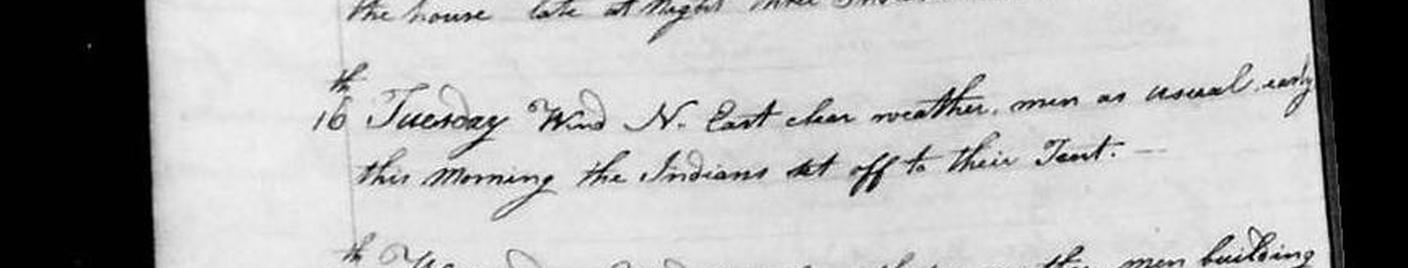 the house late at Night three
16th Tuesday Wind N. East clear weather, men as usual early
this Morning the Indians set off to their Tent. —
th men building